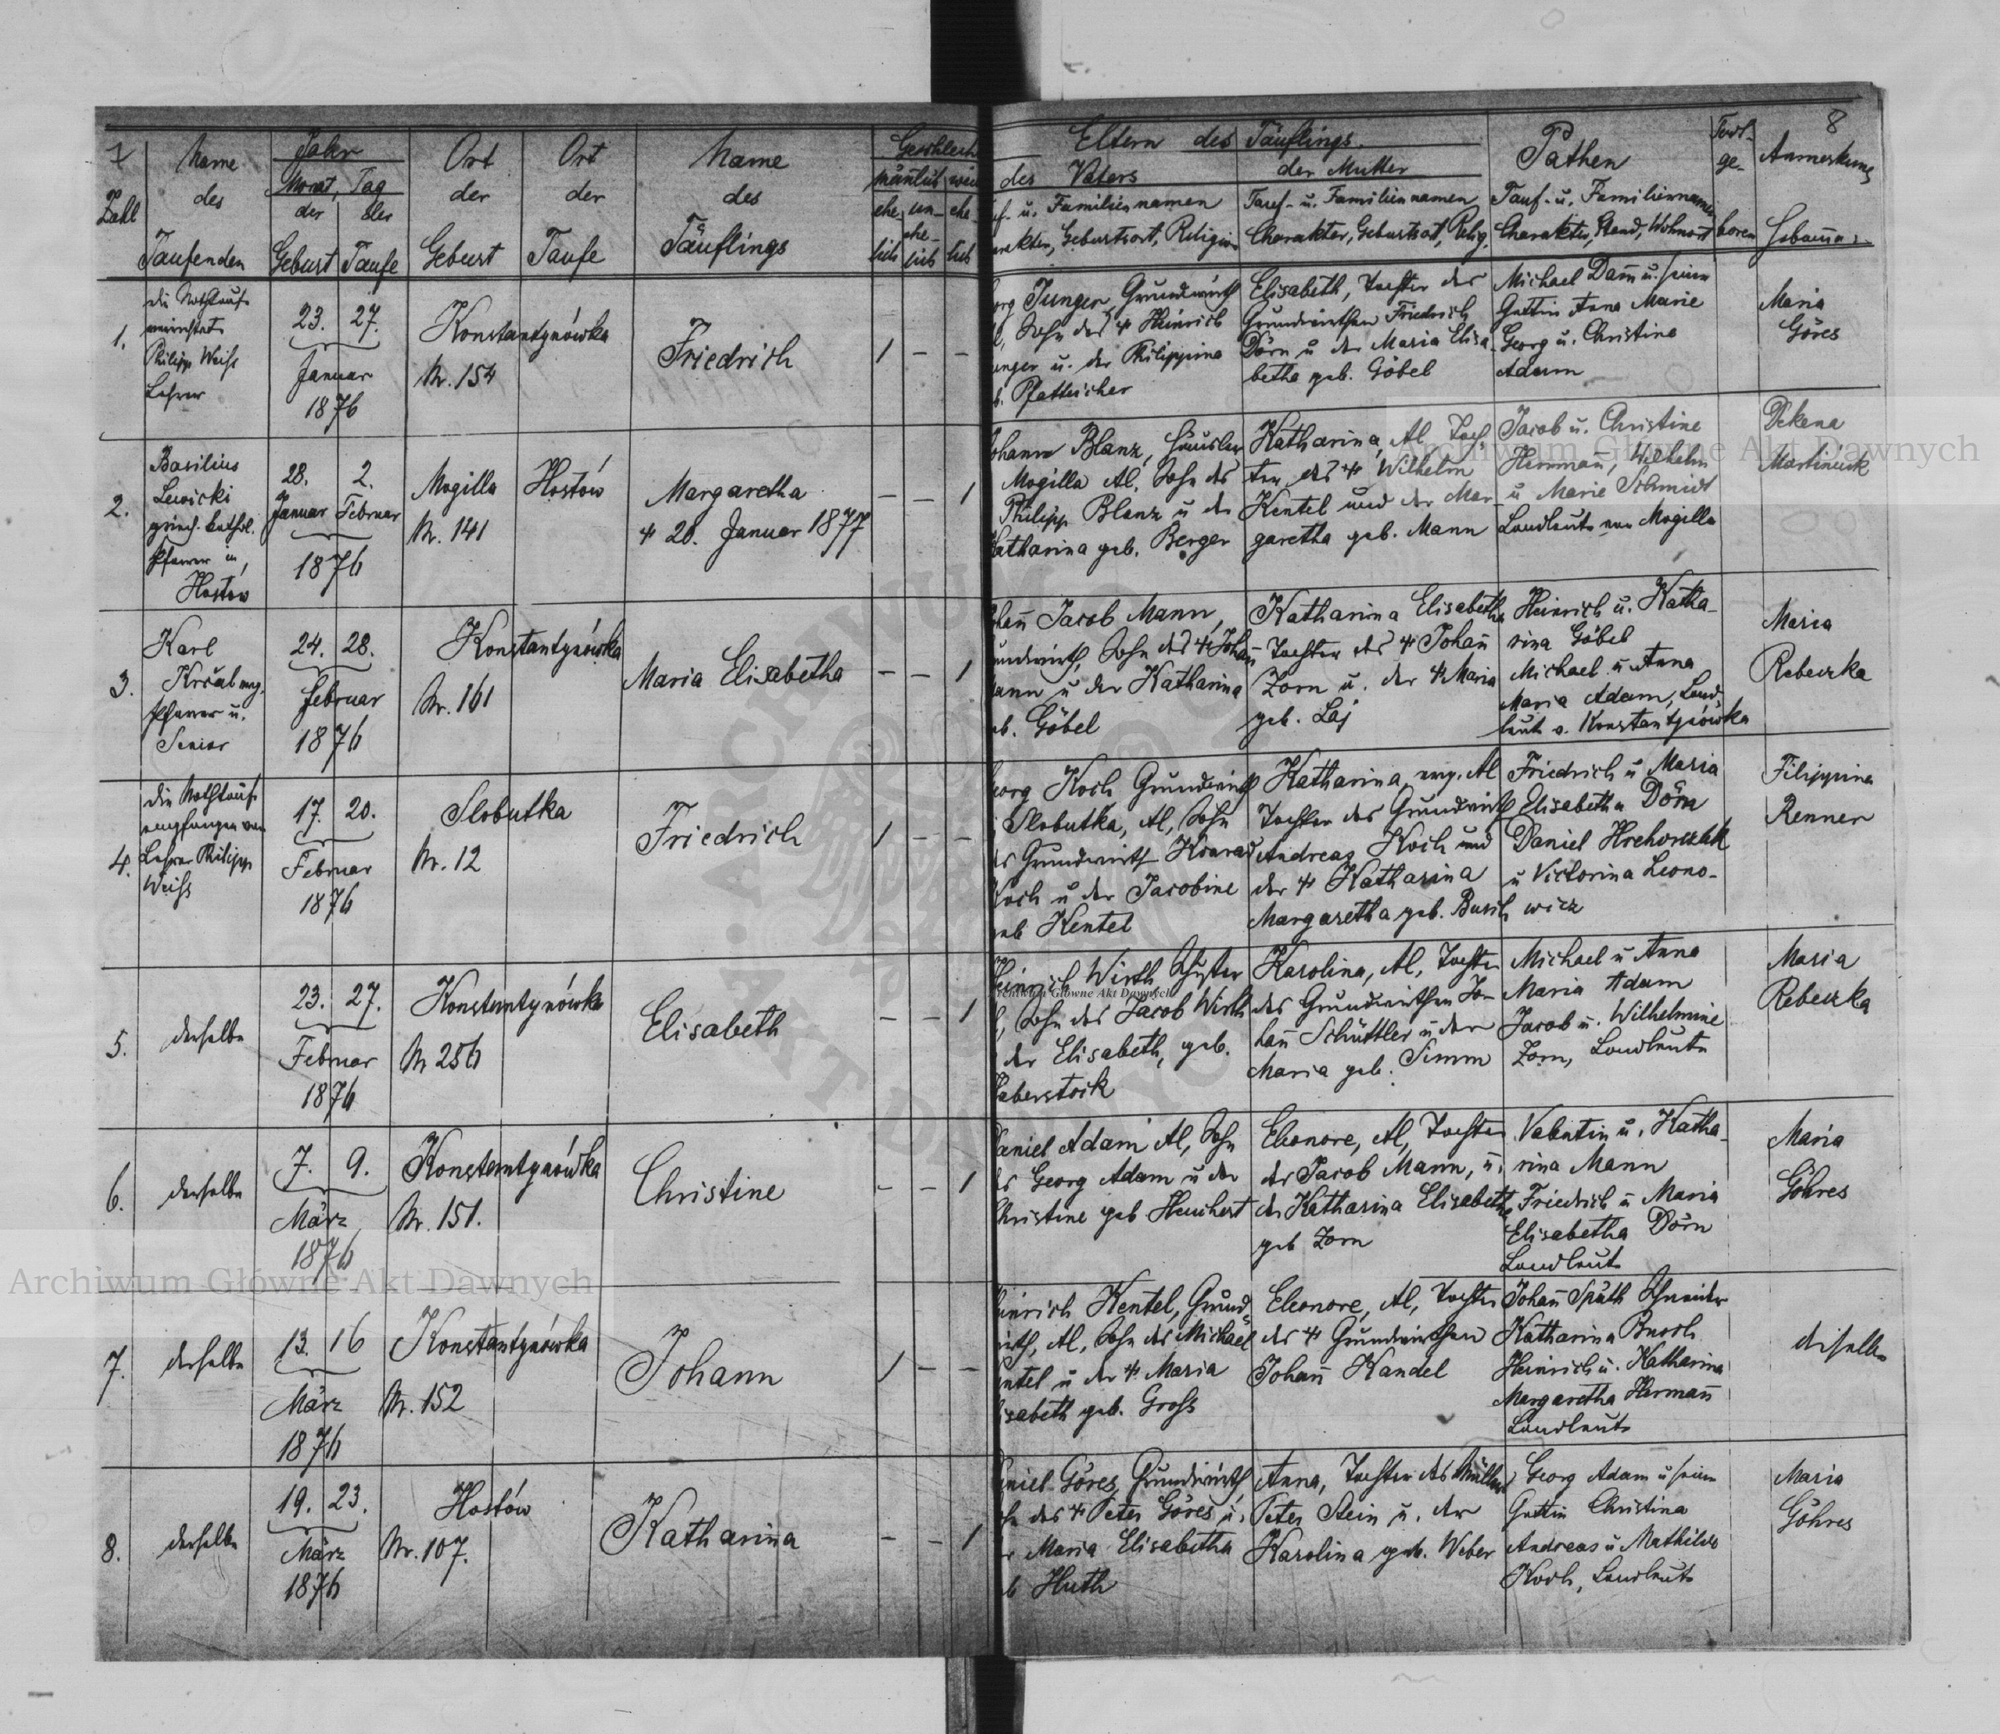 7
Zahl
Name
des
Taufenden
Jahr
Monat, Tag
der
der
Geburt
Taufe
Ort
der
Geburt
Ort
der
Taufe
Name
des
Täuflings
Geschlech
mänlich
ehe
lich
un-
ehe-
lich
ehe
lich
1.
die Nothtaufe
Philipp Weiß
Lehrer
23. 27.
Januar
1876
Konstantynówka
Nr. 154
Friedrich
1 – –
2.
Basilius
Lewicki
griech. kathol.
Pfarrer in
Hostow
28. 2.
Januar Februar
1876
Mogilla
Nr. 141
Hostów
Margaretha
28. Januar 1877
– – 1
3.
Karl
Krčal evg.
Pfarrer u.
Senior
24. 28.
Februar
1876
Konstantynówka
Nr. 161
Maria Elisabetha
– – 1
4.
die Nothtaufe
empfangen von
Lehrer Philipp
Weiß
17. 20.
Februar
1876
Slobutka
Nr. 12
Friedrich
1 – –
5.
derselbe
23. 27.
Februar
1876
Konstantynówka
Nr 256
Elisabeth
– – 1
6.
derselbe
7. 9.
März
1876
Konstantynówka
Nr. 151.
Christine
– – 1
7.
derselbe
13. 16
März
1876
Konstantynówka
Nr. 152
Johann
1 – –
8.
derselbe
19. 23.
März
1876
Hostów
Nr. 107.
Katharina
– – 1
8
Eltern des Täuflings.
des Vaters
u. Familiennamen
Geburtsort, Religion
der Mutter
Tauf- u. Familiennamen
Charakter, Geburtsort, Relig.
Pathen
Tauf- u. Familiennamen
Charakter, Stand, Wohnort
Todt-
ge-
boren
Anmerkung
Hebamme
org Junger, Grundwirth
Sohn des Heinrich
unger u. der Philippina
Pfatteicher
Elisabeth, Tochter des
Grundwirthen Friedrich
Dörn u der Maria Elisa-
betha geb. Göbel
Michael Dam̄ u. seine
Gattin Anna Marie
Georg u. Christina
Adam
Maria
Göres
ohann Blanz, Häusler
Mogilla Al. Sohn des
Philipp Blanz u der
Katharina geb. Berger
Katharina, Al. Toch-
ter des Wilhelm
Kentel und der Mar-
garetha geb. Mann
Jacob u. Christine
Herman, Wilhelm
u Marie Schmidt
Landleute von Mogilla
Martiniuk
han̄ Jacob Mann,
undwirth, Sohn des Johan̄
ann u der Katharina
eb. Göbel
Katharina Elisabetha
Tochter des Johan̄
Zorn u. der Maria
geb. Laj
Heinrich u. Katha-
rina Göbel
Michael u Anna
Maria Adam, Land-
leute v. Konstantynówka
Maria
Rebeczka
eorg Koch Grundwirth
Slobutka, Al, Sohn
Grundwirth Konrad
Koch u der Jacobine
geb Kentel
Katharina, evg. Al
Tochter des Grundwirth
Andreas Koch und
der Katharina
Margaretha geb. Busch
Friedrich u Maria
Elisabetha Dörn
Daniel Hrehorczak
u Victorina Leono-
wicz
Filippina
Renner
Heinrich Wirth Schuster
Sohn des Jacob Wirth
der Elisabeth, geb.
Haberstock
Karolina, Al, Tochter
des Grundwirthen Jo-
han̄ Schüttler u der
Maria geb. Simm
Michael u Anna
Maria Adam
Jacob u. Wilhelmine
Zorn, Landleute
Maria
Rebeczka
aniel Adam Al, Sohn
Georg Adam u der
Christine geb Heuchert
Eleonore, Al, Tochter
des Jacob Mann, u.
der Katharina Elisabetha
geb Zorn
Valentin u. Katha-
rina Mann
Friedrich u Maria
Elisabetha Dörn
Landleute
Maria
Göhres
inrich Kentel, Grund-
irth, Al, Sohn des Michael
entel u der Maria
isabeth geb. Groß
Eleonore, Al, Tochter
des Grundwirthen
Johan̄ Kandel
Johan̄ Späth Schneider
Katharina Busch
Heinrich u. Katharina
Margaretha Herman̄
Landleute
dieselbe
niel Göres, Grundwirth
des Peter Göres u.
Maria Elisabetha
Huth
Anna, Tochter des Müllers
Peter Stein u. der
Karolina geb. Weber
Georg Adam u seine
Gattin Christina
Andreas u Mathilde
Koch, Landleute
Maria
Göhres
Archiwum Główne Akt Dawnych
Archiwum Główne Akt Dawnych
Archiwum Główne Akt Dawnych